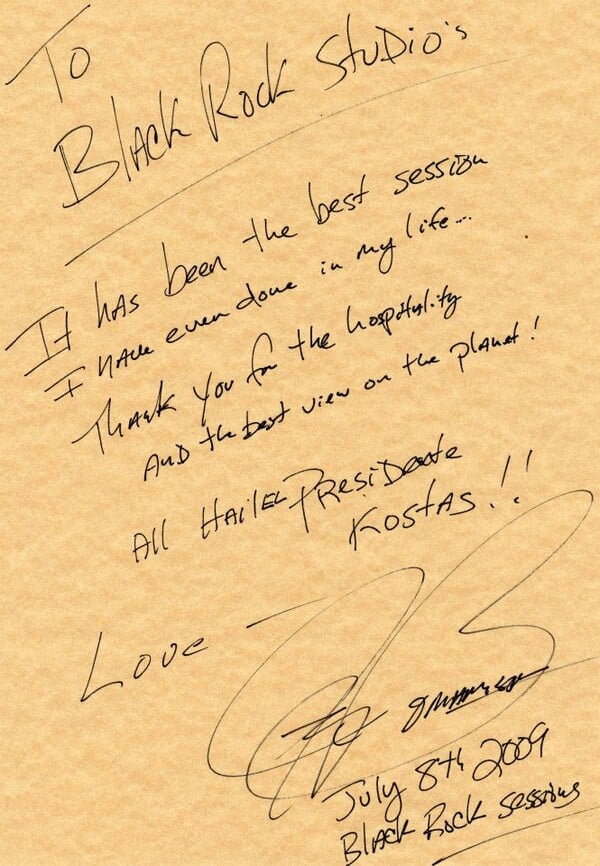 To
Black Rock Studio's
It has been the best session
I have ever done in my life...
Thank you for the hospitality
And the best view on the planet!
All Hail El Presidente
Kostas!!
Love
July 8th 2009
Black Rock sessions